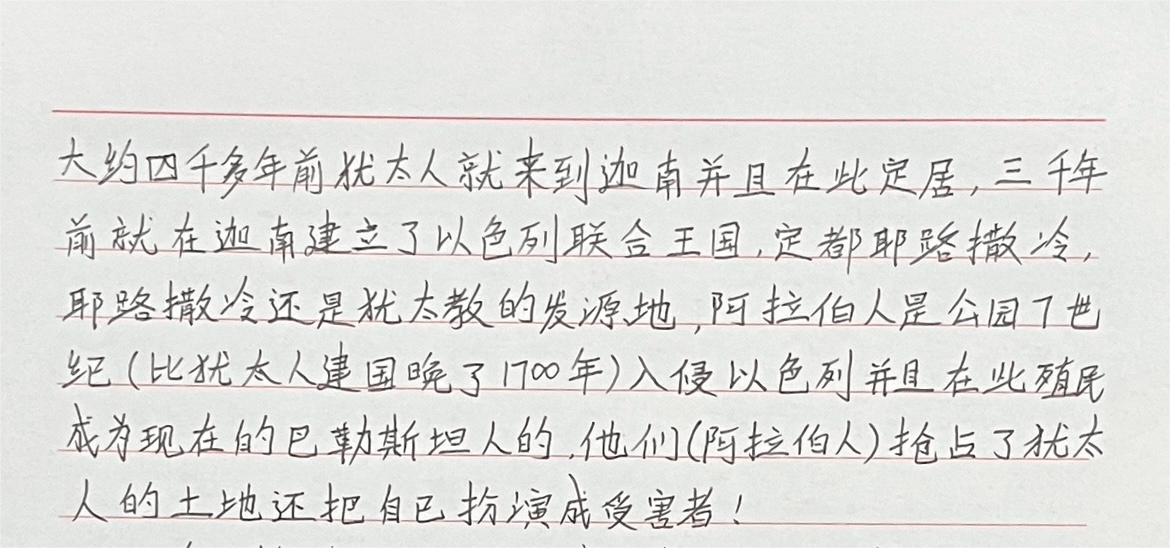 大约四千多年前犹太人就来到迦南并且在此定居，三千年
前就在迦南建立了以色列联合王国，定都耶路撒冷，
耶路撒冷还是犹太教的发源地，阿拉伯人是公园7世
纪（比犹太人建国晚了1700年）入侵以色列并且在此殖民
成为现在的巴勒斯坦人的，他们（阿拉伯人）抢占了犹太
人的土地还把自己扮演成受害者！